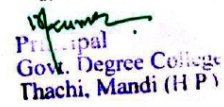 Principal
Govt. Degree College
Thachi, Mandi (H P)